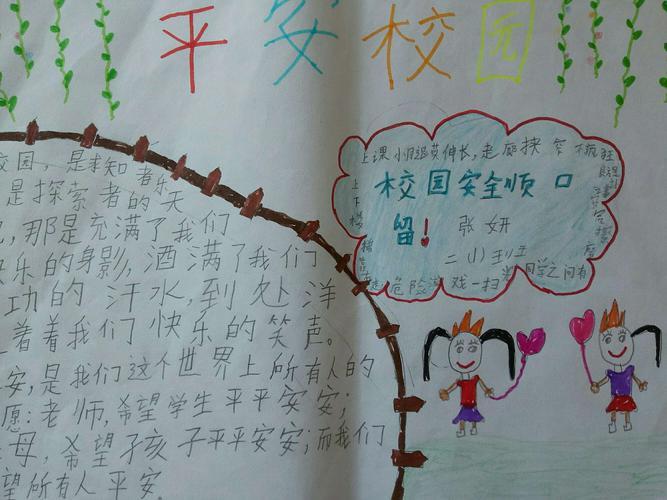 平安校园
校园,是求知者乐
是探索者的天
,那是充满了我们
快乐的身影,洒满了我们
功的汗水,到处洋
着着我们快乐的笑声。
安,是我们这个世界上所有人的
愿:老师,希望学生平平安安;
母,希望孩子平平安安;而我们
望所有人平安
上课小组莫伸长,走廊挟窄不
校园安全顺口
留!
张妍
上下楼
危险游戏一扫光
同学之间有